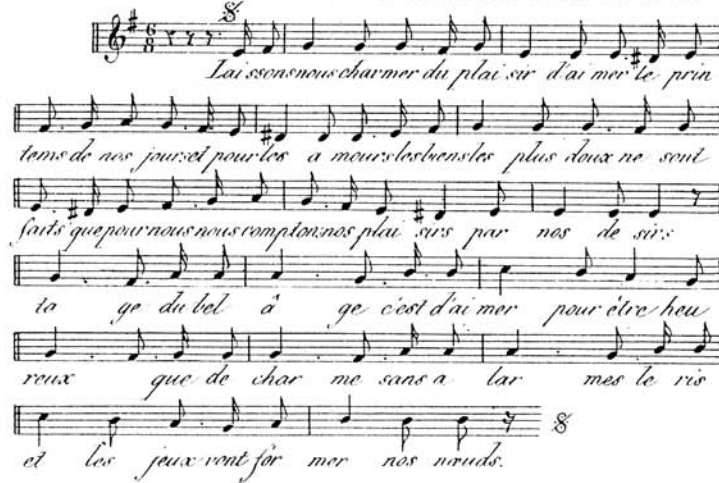 Laissons nous charmer du plaisir d'aimer le prin
tems de nos jours et pour les amours les biens les plus doux ne sont
faits que pour nous nous comptons nos plaisirs par nos desirs
ta ge du bel â ge c'est d'aimer pour être heu
reux que de char me sans a lar mes le ris
et les jeux vont for mer nos nœuds.